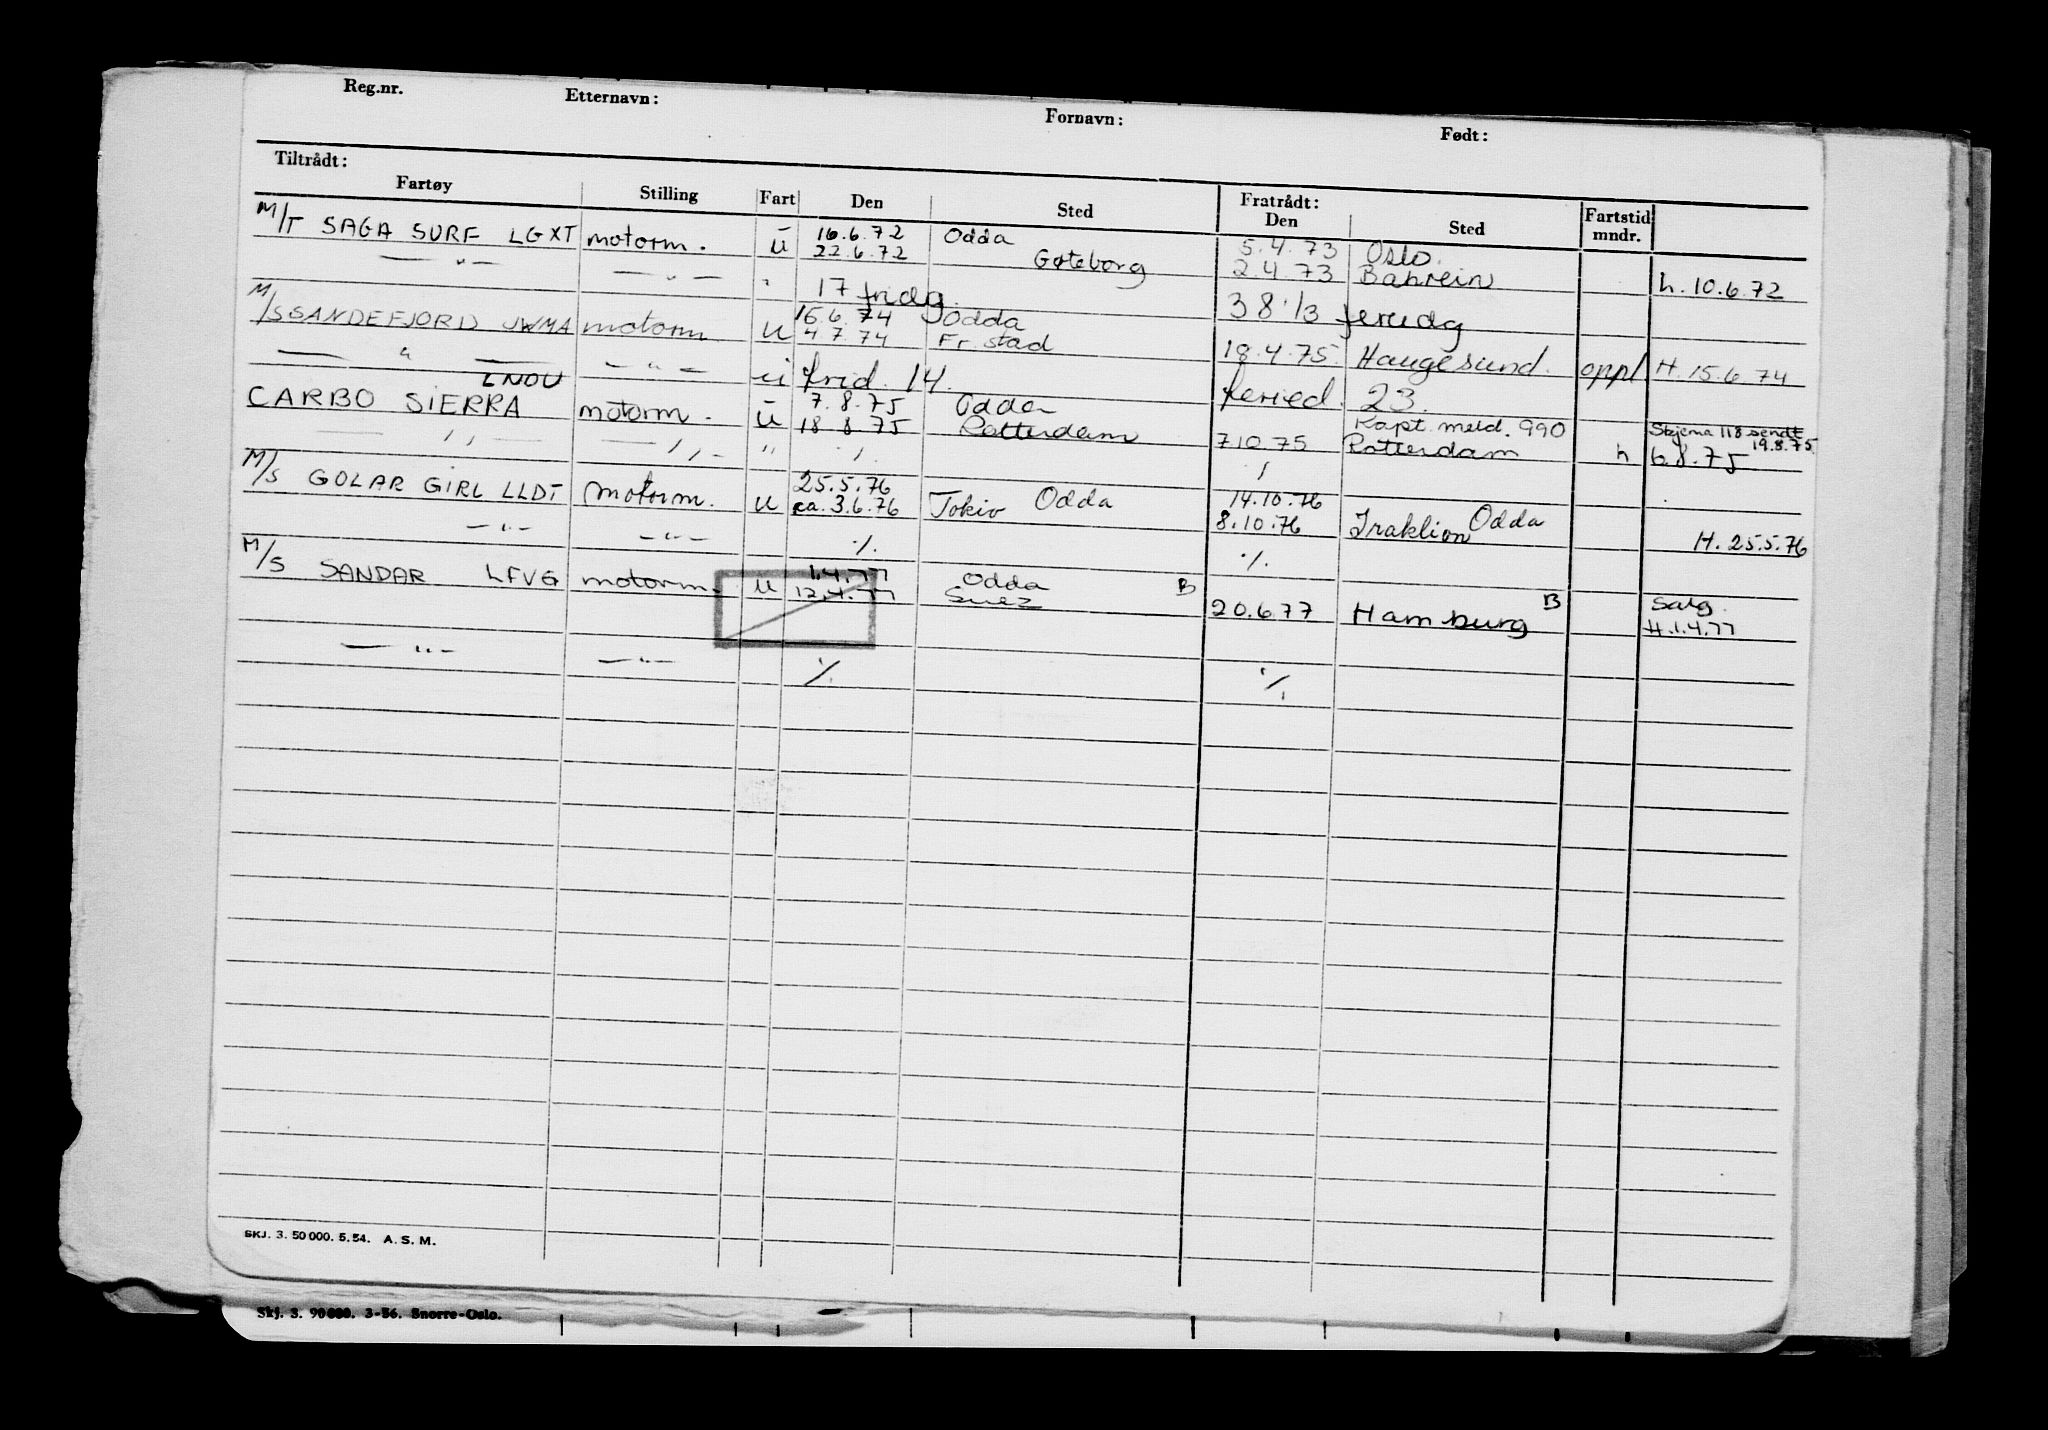 Reg.nr. Etternavn: Fornavn: Født:
Tiltrådt: Fratrådt:
Fartøy Stilling Fart Den Sted Den Sted Fartstid mndr.
M/T SAGA SURF LGXT motorm. u 16.6.72 Odda 5.4.73 Oslo.
22.6.72 Gøteborg 2.4.73 Bahrein h. 10.6.72
— " — — " — " 17 fridg. 38 1/3 feridg
M/S SANDEFJORD JWMA motorm u 15.6.74 Odda
4.7.74 Fr.stad 18.4.75. Haugesund. oppl H. 15.6.74
— " — — " — u frid. 14. feried. 23.
LNOU
CARBO SIERRA motorm. u 7.8.75 Odda Kapt. meld. 990 Skjema 118 sendt 19.8.75.
18 8 75 Rotterdam 7.10.75 Rotterdam h 6.8.75
— ,, — — ,, — " ·/. /
M/S GOLAR GIRL LLDT motorm. u 25.5.76 Odda 14.10.76 Odda
ca. 3.6.76 Tokio 8.10.76 Iraklion H. 25.5.76
— " — — " — ·/. ·/.
M/S SANDAR LFVG motorm. u 1.4.77 Odda B
12.4.77 Suez 20.6.77 Hamburg B Salg.
H.1.4.77
— " — — " — ·/. ·/.
SKJ. 3. 50 000. 5.54. A. S. M.
Skj. 3. 90 000. 3-56. Snorre-Oslo.